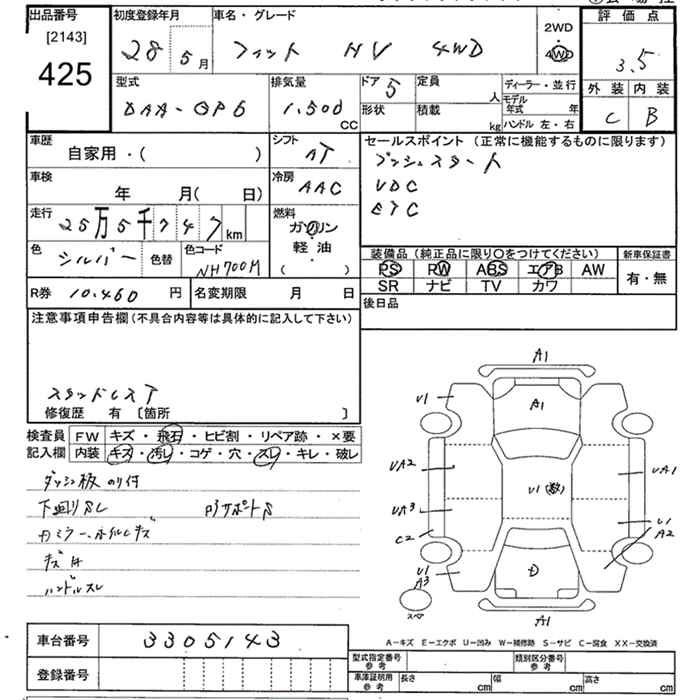 出品番号
[2143]
425
初度登録年月
28 5月
車名・グレード
フィット HV 4WD
2WD
4WD
評価点
3.5
外装 内装
C B
型式
DAA-GP6
排気量
1,500
CC
ドア 5
形状
定員
人
積載
kg
ディーラー・並行
モデル年式 年
ハンドル 左・右
車歴
自家用・( )
シフト
AT
セールスポイント (正常に機能するものに限ります)
プッシュスタート
VDC
ETC
車検
年 月( 日)
冷房
AAC
走行
25万5千747km
燃料
ガソリン
軽油
( )
色
シルバー
色替
色コード
NH700M
装備品 (純正品に限り○をつけてください)
PS PW ABS エアB AW
SR ナビ TV カワ
新車保証書
有・無
R券 10,460 円
名変期限 月 日
後日品
注意事項申告欄 (不具合内容等は具体的に記入して下さい)
スタッドレスT
修復歴 有 [箇所 ]
検査員
記入欄
FW キズ・飛石・ヒビ割・リペア跡・×要
内装 キズ・汚レ・コゲ・穴・スレ・キレ・破レ
ダッシ板 のり付
下廻りS
サポートS
キズ
ハンドルスレ
A1
A1
U1
UA2
UA3
C2
U1
A3
スペア
U1(数)
D
UA1
U1
A2
A1
A-キズ E-エクボ U-凹み W-補修跡 S-サビ C-腐食 XX-交換済
車台番号 3305143
登録番号
型式指定番号
参考
類別区分番号
参考
車庫証明用
参考
長さ cm
幅 cm
高さ cm